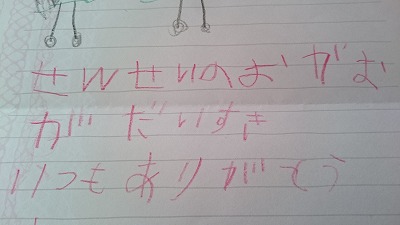 せんせいのおがお
がだいすき
いつもありがとう